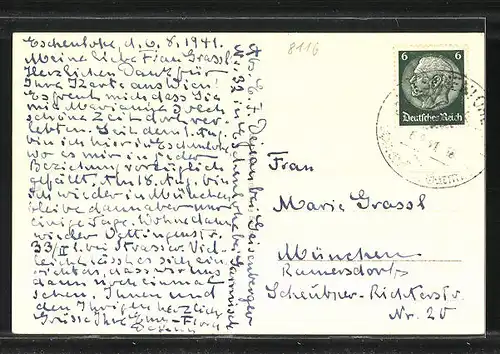 Eschenlohe, d. 6. 8. 1941.
Meine liebe Frau Grassl
Herzlichen Dank für
Ihre Karte aus Wien!
Es freut mich dass Sie
mit Marianne recht
schöne Zeit dort ver-
lebten. Seit dem 1. Aug.
bin ich hier in Eschenlohe
wo es mir in jeder
Beziehung vorzüglich
gefällt. Am 18. Aug. bin
ich wieder in München
bleibe dann aber nur
einige Tage. Wohne dann
wieder Oettingenstr.
33/II l. bei Strasser. Viel-
leicht lässt es sich ein-
richten, dass wir uns
dann noch einmal
sehen. Ihnen und
den Ihrigen herzlich
Grüsse Ihre
Abs. E. F. bei Geisenberger
Nr. 32 in Eschenlohe bei Garmisch
8116
6 6
Deutsches Reich
Frau
Marie Grassl
München
Ramersdorf
Scheubner-Richterstr.
Nr. 20